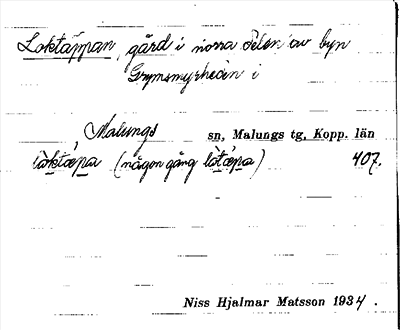 Loktäppan, gård i norra delen av byn
Grymsmyrheden i
Malungs sn, Malungs tg, Kopp. län
lòktǽpa (någon gång lòtǽpa) 407.
Niss Hjalmar Matsson 1934.